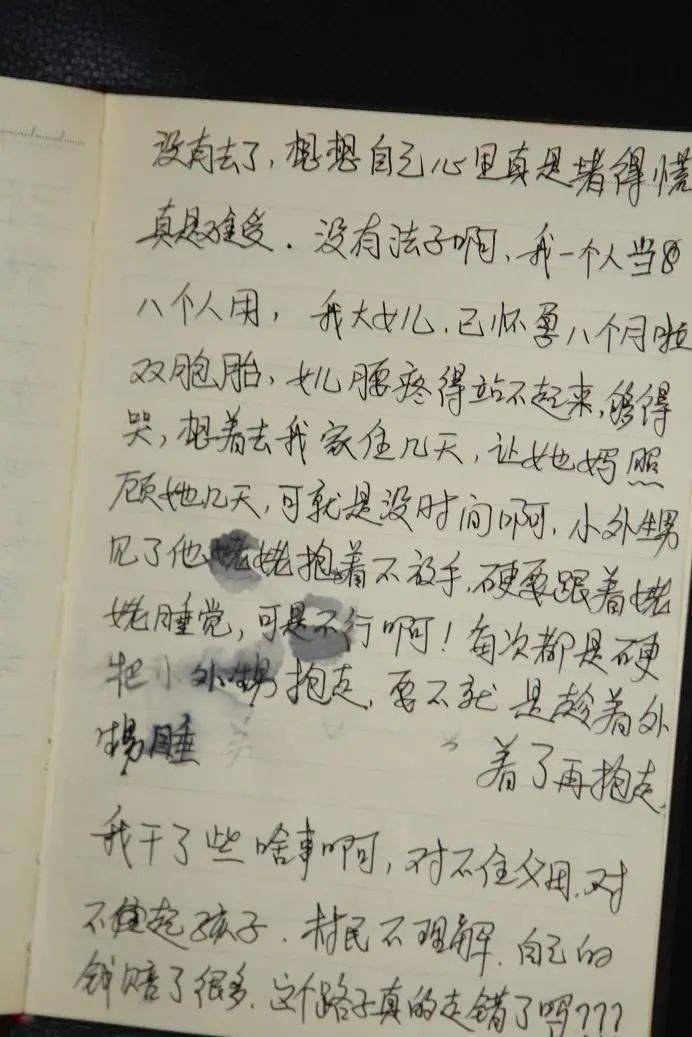 没有去了,想想自己心里真是堵得慌
真是难受.没有法子啊、我一个人当
八个人用,我大女儿.已怀孕八个月啦
双胞胎,女儿腰疼得站不起来,疼得
哭,想着去我家住几天,让她妈照
顾她几天,可就是没时间啊.小外甥
见了他姥姥抱着不放手.硬要跟着姥
姥睡觉,可是不行啊!每次都是硬
把小外甥抱走.要不就是趁着外
甥睡
着了再抱走.
我干了些啥事啊,对不住父母.对
不起孩子.村民不理解.自己的
钱赔了很多.这个路子真的走错了吗???